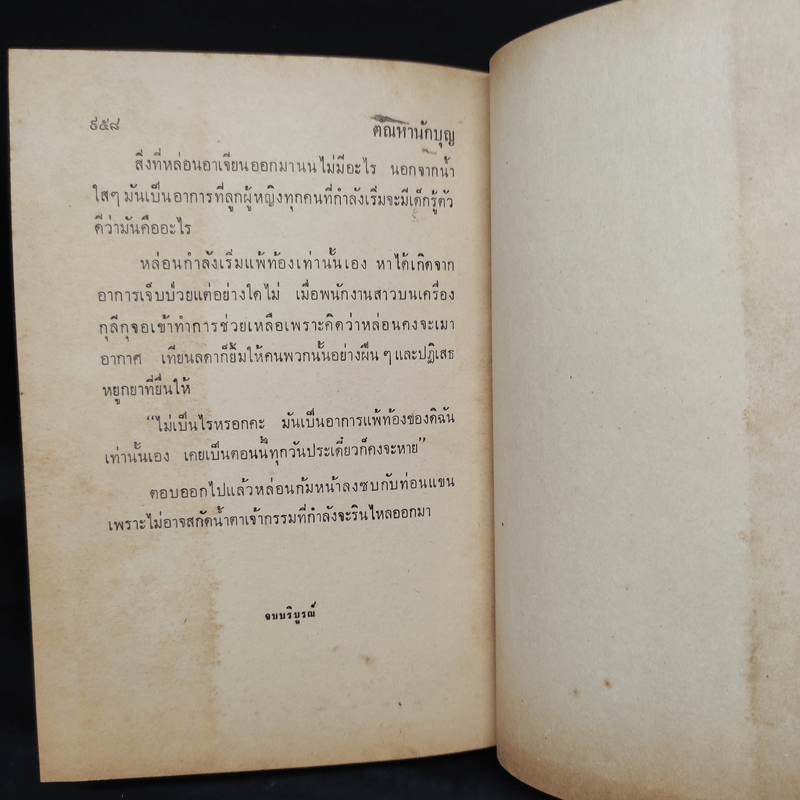 ๙๕๘
ตัณหานักบุญ
สิ่งที่หล่อนอาเจียนออกมานน ไม่มีอะไร นอกจากน้ำ
ใสๆ มันเป็นอาการที่ลูกผู้หญิงทุกคนที่กำลังเริ่มจะมีเด็กรู้ตัว
ดีว่ามันคืออะไร
หล่อนกำลังเริ่มแพ้ท้องเท่านั้นเอง หาได้เกิดจาก
อาการเจ็บป่วยแต่อย่างใดไม่ เมื่อพนักงานสาวบนเครื่อง
กุลีกุจอเข้าทำการช่วยเหลือเพราะคิดว่าหล่อนคงจะเมา
อากาศ เทียนลดาก็ยิ้มให้คนพวกนั้นอย่างฝืน ๆ และปฏิเสธ
หยูกยาที่ยื่นให้
“ไม่เป็นไรหรอกคะ มันเป็นอาการแพ้ท้องของดิฉัน
เท่านั้นเอง เคยเป็นตอนนี้ทุกวันประเดี๋ยวก็คงจะหาย”
ตอบออกไปแล้วหล่อนก้มหน้าลงซบกับท่อนแขน
เพราะไม่อาจสกัดน้ำตาเจ้ากรรมที่กำลังจะรินไหลออกมา
จบบริบูรณ์